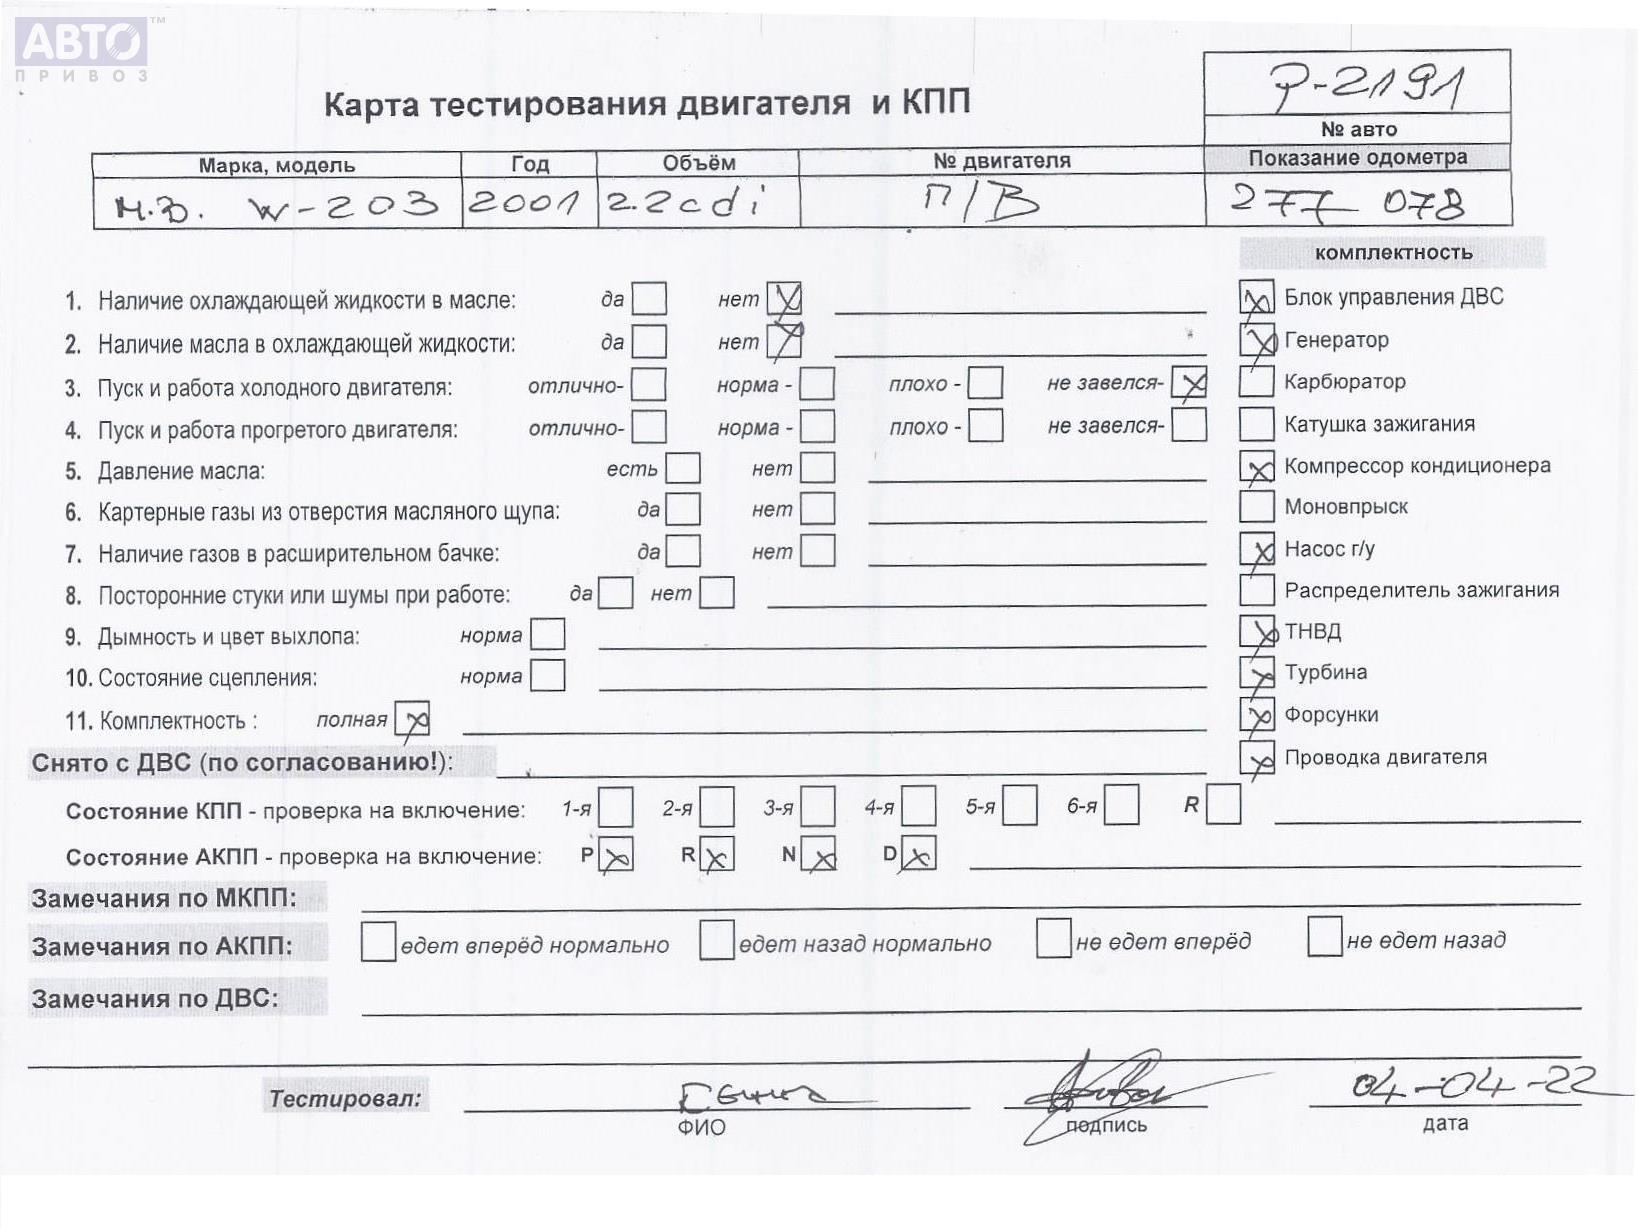 АВТО™
ПРИВОЗ
Карта тестирования двигателя и КПП
P-2191
№ авто
Марка, модель Год Объём № двигателя Показание одометра
М.Б. W-203 2001 2.2cdi П/В 277 078
комплектность
1. Наличие охлаждающей жидкости в масле: да нет Блок управления ДВС
2. Наличие масла в охлаждающей жидкости: да нет Генератор
3. Пуск и работа холодного двигателя: отлично- норма - плохо - не завелся- Карбюратор
4. Пуск и работа прогретого двигателя: отлично- норма - плохо - не завелся- Катушка зажигания
5. Давление масла: есть нет Компрессор кондиционера
6. Картерные газы из отверстия масляного щупа: да нет Моновпрыск
7. Наличие газов в расширительном бачке: да нет Насос г/у
8. Посторонние стуки или шумы при работе: да нет Распределитель зажигания
9. Дымность и цвет выхлопа: норма ТНВД
10. Состояние сцепления: норма Турбина
11. Комплектность : полная Форсунки
Снято с ДВС (по согласованию!): Проводка двигателя
Состояние КПП - проверка на включение: 1-я 2-я 3-я 4-я 5-я 6-я R
Состояние АКПП - проверка на включение: P R N D
Замечания по МКПП:
Замечания по АКПП: едет вперёд нормально едет назад нормально не едет вперёд не едет назад
Замечания по ДВС:
Тестировал: Гена 04-04-22
ФИО подпись дата